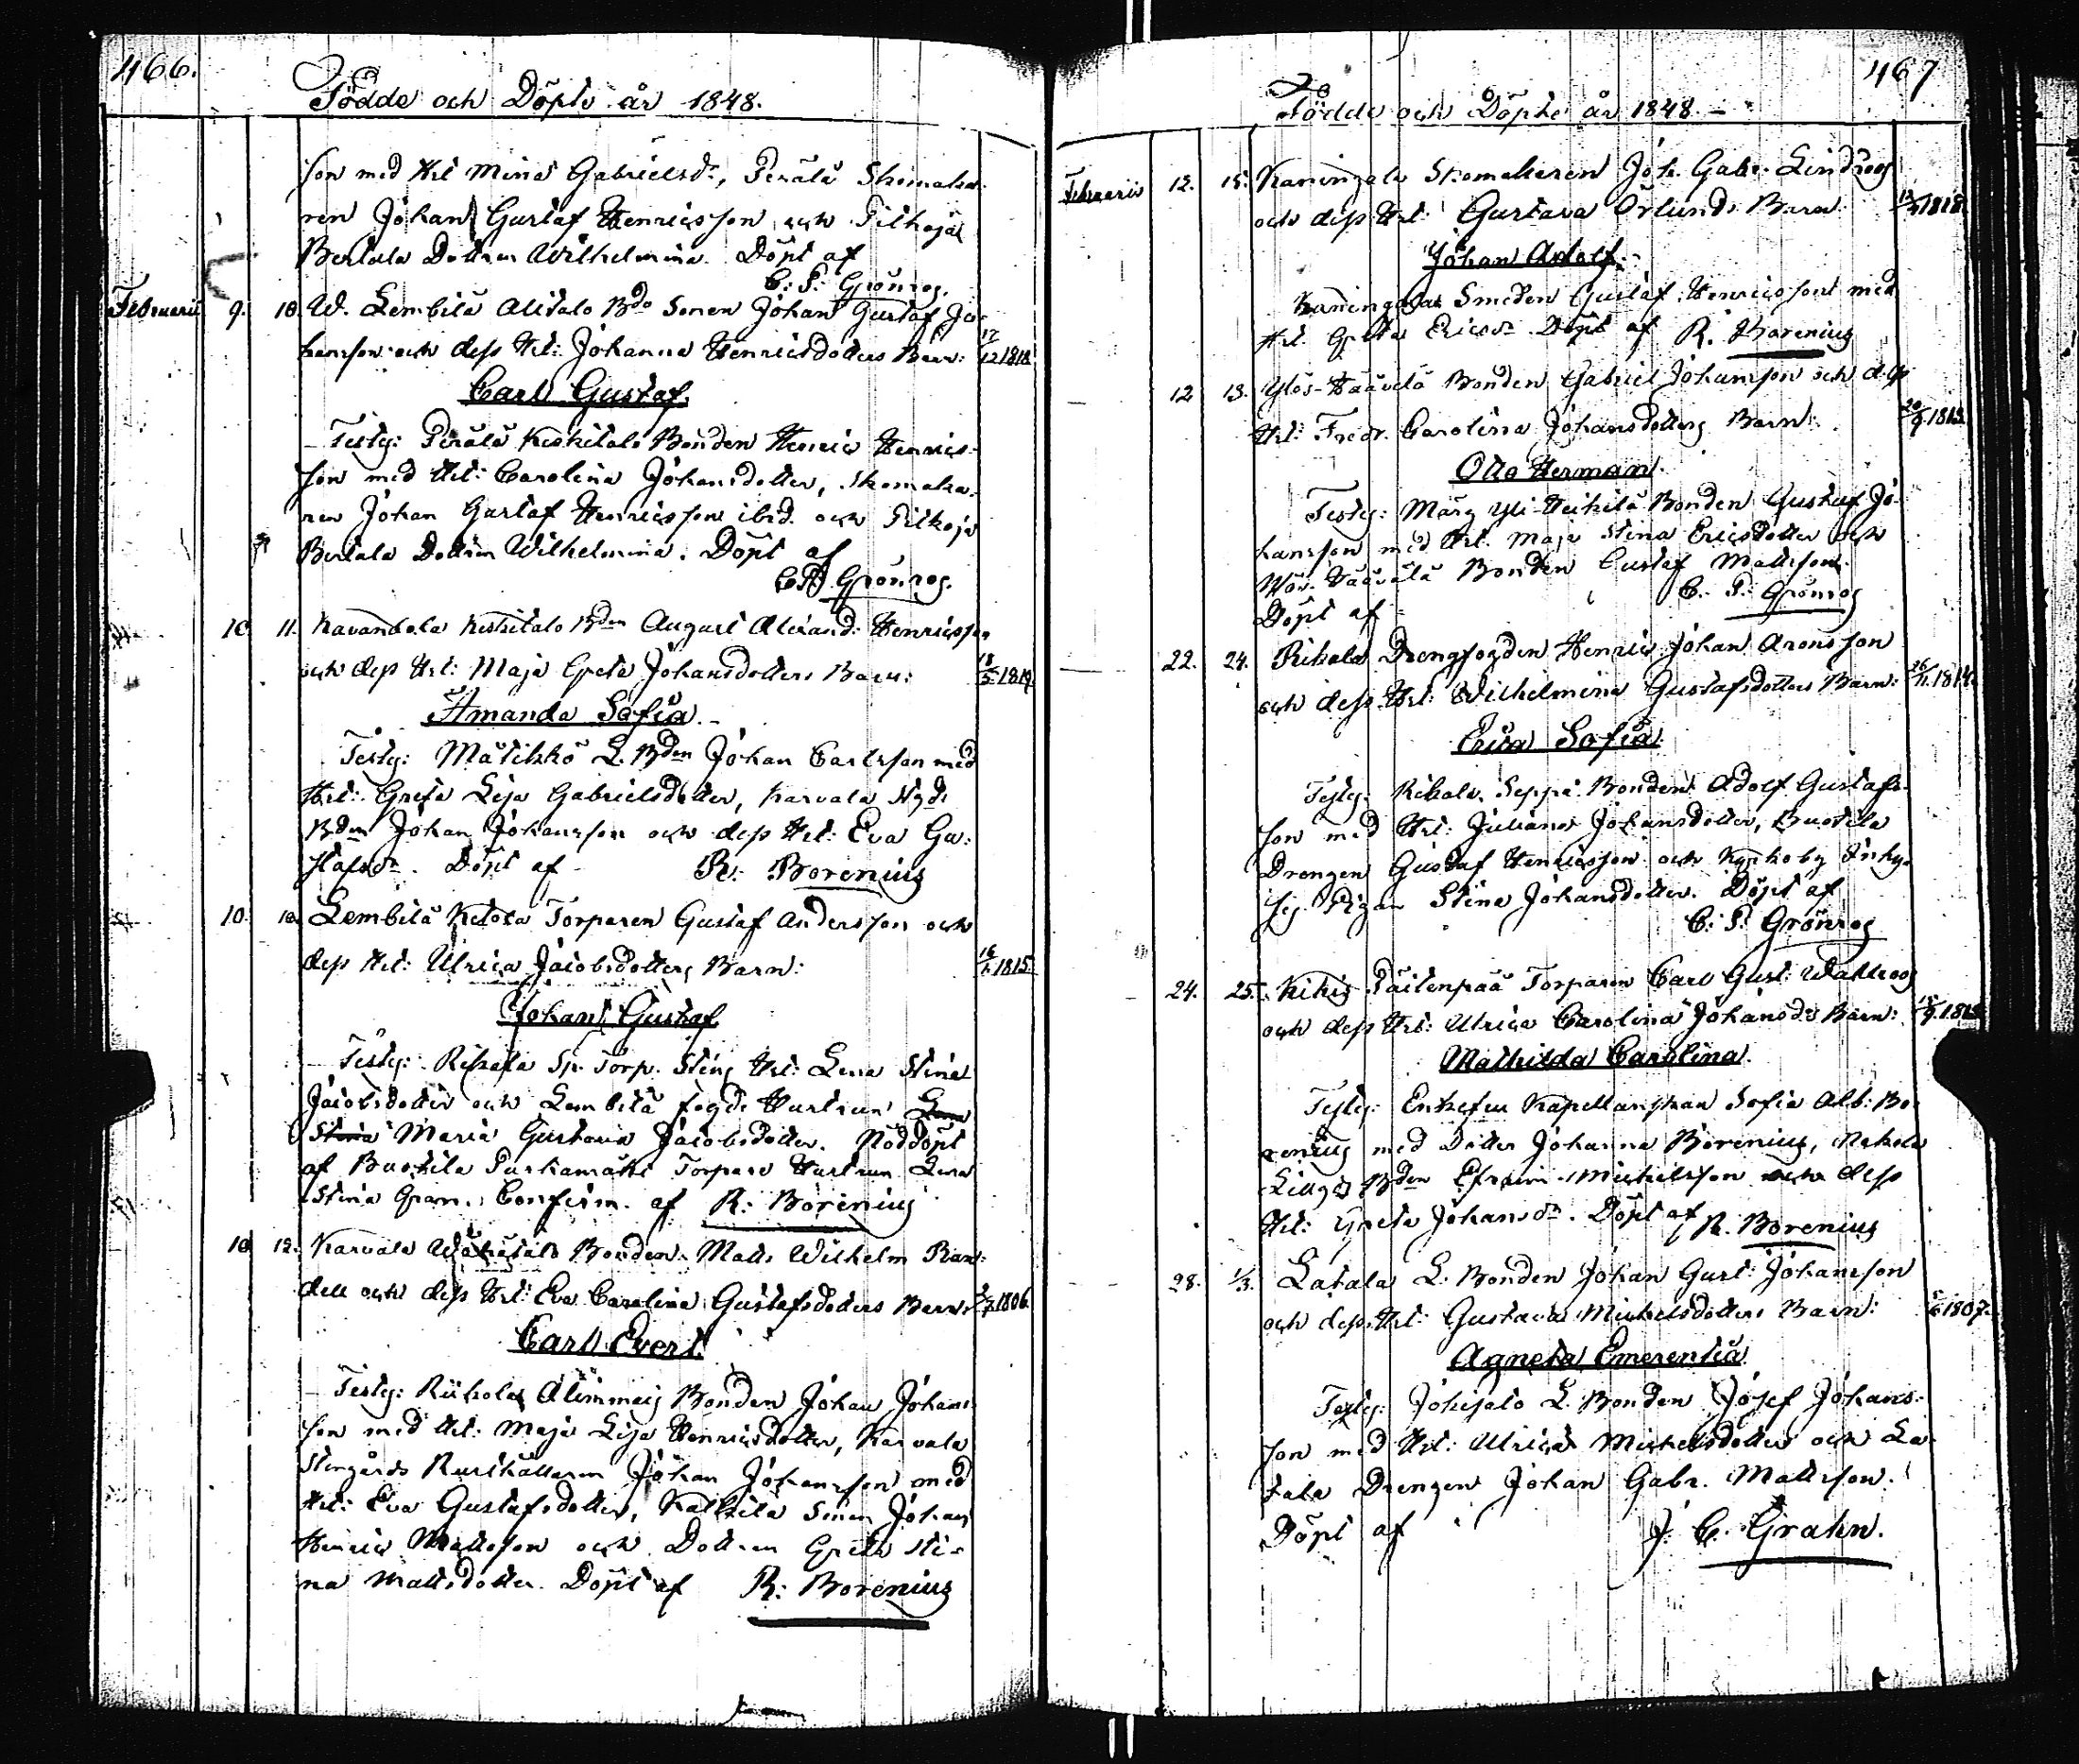 466.
Födde och Döpte år 1848.
son med Hst Mina Gabrielsdr, Perälä Skomaka-
ren Johan Gustaf Henricsson och Pilhoja
Bertala Dottren Wilhelmina. Döpt af
C. P. Grönroo.
Februarii 9. 10. W. Lembilä Alitalo Bdo Sonen Johan Gustaf Jo-
hansson och dess Hst: Johanna Henricsdotters Barn: 17/12 1818
Carl Gustaf.
Testg: Perälä Keskitalo Bonden Henric Henrics-
son med Hst: Carolina Johansdotter, Skomaka-
ren Johan Gustaf Henricsson ibid. och Pilkoja
Bertala Dottren Wilhelmina. Döpt af
C. P. Grönroo.
10 11. Kavantola Keskitalo Bden August Alexand: Henricsson
och dess Hst: Maja Greta Johansdotters Barn: 18/5 1819.
Amanda Sofia.
Testg: Mätikkö L. Bden Johan Carlsson med
Hst: Greta Lisa Gabrielsdotter, Karvala Nygds
Bden Johan Johansson och dess Hst: Eva Gu-
stafsdr. Döpt af R: Borenius
10. 10. Lembilä Ketola Torparen Gustaf Andersson och
dess Hst: Ulrica Jacobsdotters Barn: 16/1 1815.
Johan Gustaf
Testg: Rikala Sp. Torp. Stens Hst: Lena Stina
Jacobsdotter och Lembilä fogds Hustrun Lena
Stina Maria Gustava Jacobsdotter. Nöddöpt
af Buskila Torpare Hustrun Lena
Stina Gran. Confirm. af R: Borenius
10 12. Karvala Bonden Matts Wilhelm Ran-
dell och dess Hst: Eva Carolina Gustafsdotters Barn: 2/7 1806.
Carl Evert.
Testg: Riikola Alimmeis Bonden Johan Johans-
son med Hst: Maja Lisa Henricsdotter, Karvala
Stengårds Rusthållaren Johan Johansson med
Hst: Eva Gustafsdotter, Kalkila Sonen Johan
Henric Mattsson och Dottren Greta Sti-
na Mattsdotter. Döpt af R: Borenius
467
Födde och Döpte år 1848.
Februarii 12. 15. Kaningala Skomakaren Joh. Gabr. Lindroos
och dess Hst: Gustava Örlunds Barn: 1818
Johan Adolf.
Kaningala Smeden Gustaf Henricsson med
Hst. Greta Ericsdr. Döpt af R. Borenius
12 13. Ylös-Wäävelä Bonden Gabriel Johansson och dess
Hst: Fredr. Carolina Johansdotters Barn: 20/9 1813
Otto Herman.
Testg: Märy Yli-Heikilä Bonden Gustaf Jo-
hansson med Hst. Maja Stina Ericsdotter och
Bonden Gustaf Mattsson.
Döpt af C. P. Grönroo
22. 24. Rikala Drengfogden Henric Johan Aronsson
och dess Hst: Wilhelmina Gustafsdotters Barn: 26/11 1814.
Erica Sofia.
Testg: Rikala Seppä Bonden Adolf Gustafs-
son med Hst: Juliana Johansdotter, Buskila
Drengen Gustaf Henricsson och Kyrkoby Inhy-
ses Pigan Stina Johansdotter. Döpt af
C: P: Grönroo
24. 25. Kikis Päitenpää Torparen Carl Gust: Wallroos
och dess Hst: Ulrica Carolina Johansdrs Barn:
Mathilda Carolina.
Testg: Enkefru Kapellanskan Sofia Alb: Bo-
renius med Dotter Johanna Borenius,
Lillgds Bden Efraim Michelsson och dess
Hst: Greta Johansdr. Döpt af R. Borenius
28. 1/3. Latala L. Bonden Johan Gust: Johansson
och dess Hst: Gustava Michelsdotters Barn: 1807.
Agneta Emerentia
Testg. Jokisalo L. Bonden Josef Johans-
son med Hst: Ulrica Michelsdotter och La-
tala Drengen Johan Gabr. Mattsson.
Döpt af J. C. Grahn.